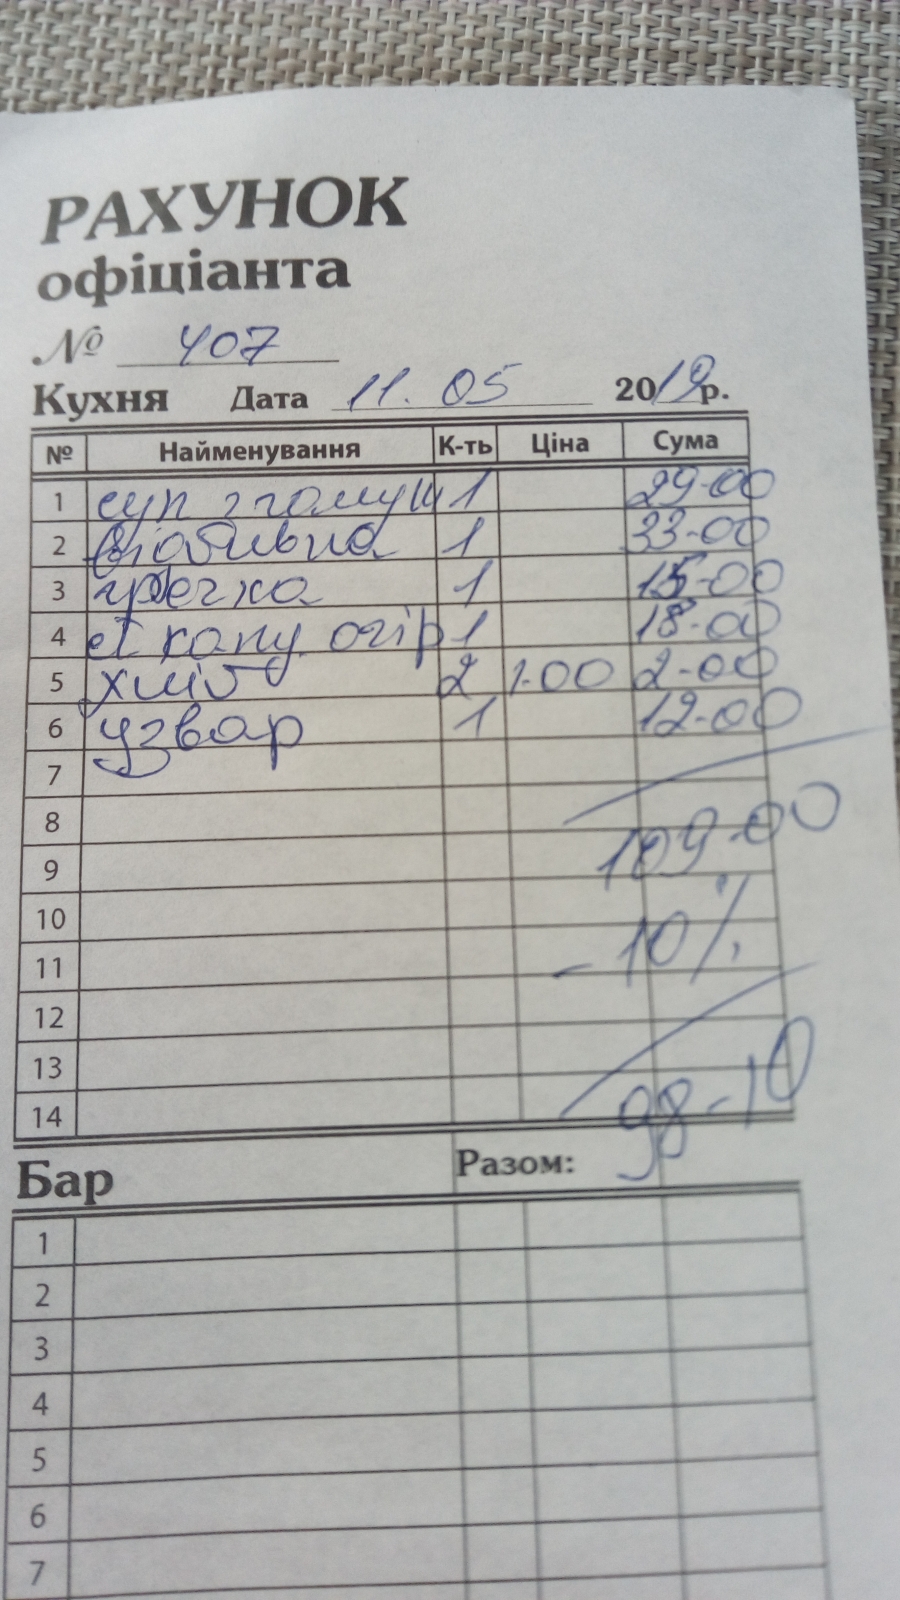 РАХУНОК
офіціанта
№ 407
Кухня Дата 11.05 2019р.
№ Найменування К-ть Ціна Сума
1 суп з галуш 1 29-00
2 відбивна 1 33-00
3 гречка 1 15-00
4 капу. огір 1 18-00
5 хліб 2 1-00 2-00
6 узвар 1 12-00
7
8
109-00
9
10
- 10%
11
12
13
98-10
14
Бар Разом:
1
2
3
4
5
6
7